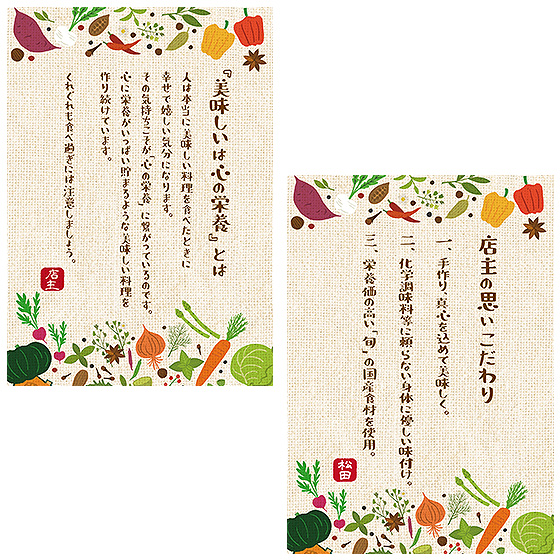 『美味しいは心の栄養』とは
人は本当に美味しい料理を食べたときに
幸せで嬉しい気分になります。
その気持ちこそが「心の栄養」に繋がっているのです。
心に栄養がいっぱい貯まるような美味しい料理を
作り続けています。
くれぐれも食べ過ぎには注意しましょう。
店主
店主の思いこだわり
一、手作り、真心を込めて美味しく。
二、化学調味料等に頼らない身体に優しい味付け。
三、栄養価の高い「旬」の国産食材を使用。
松田